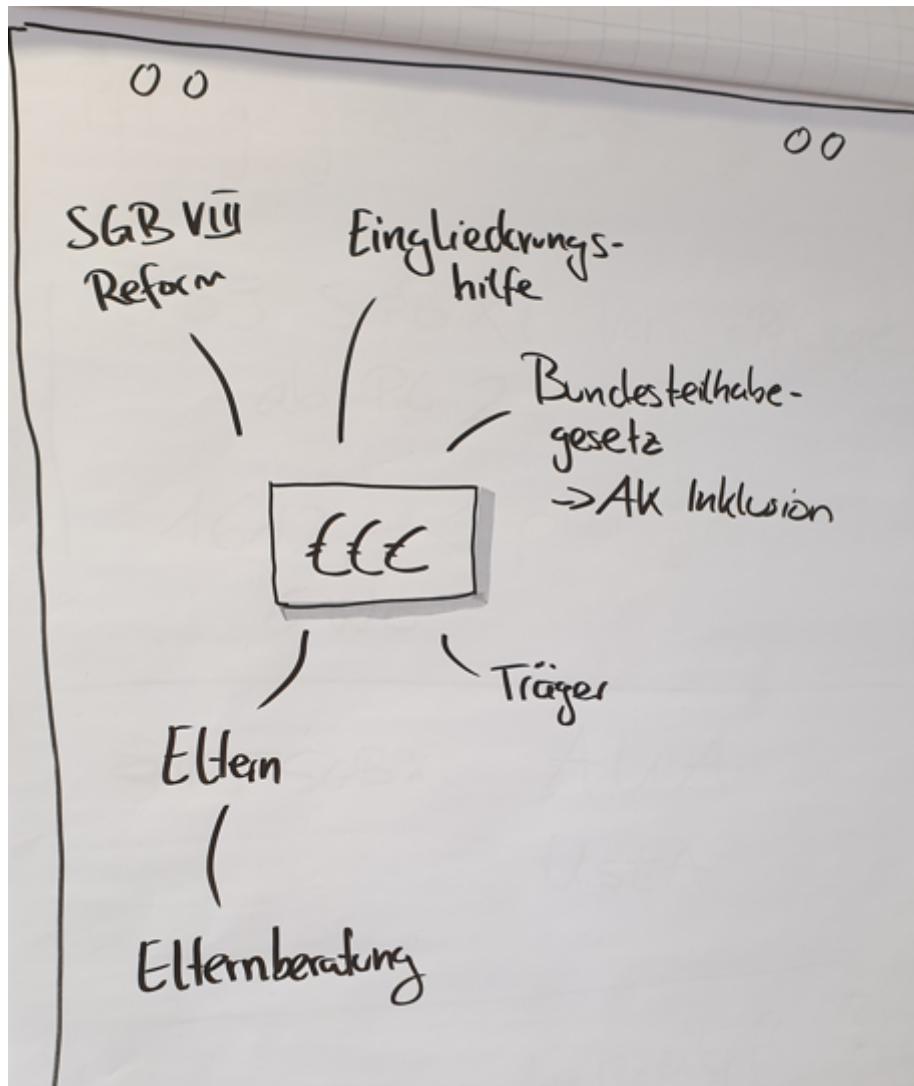 SGB VIII
Reform
Eingliederungs-
hilfe
Bundesteilhabe-
gesetz
-> AK Inklusion
€€€
Träger
Eltern
Elternberatung